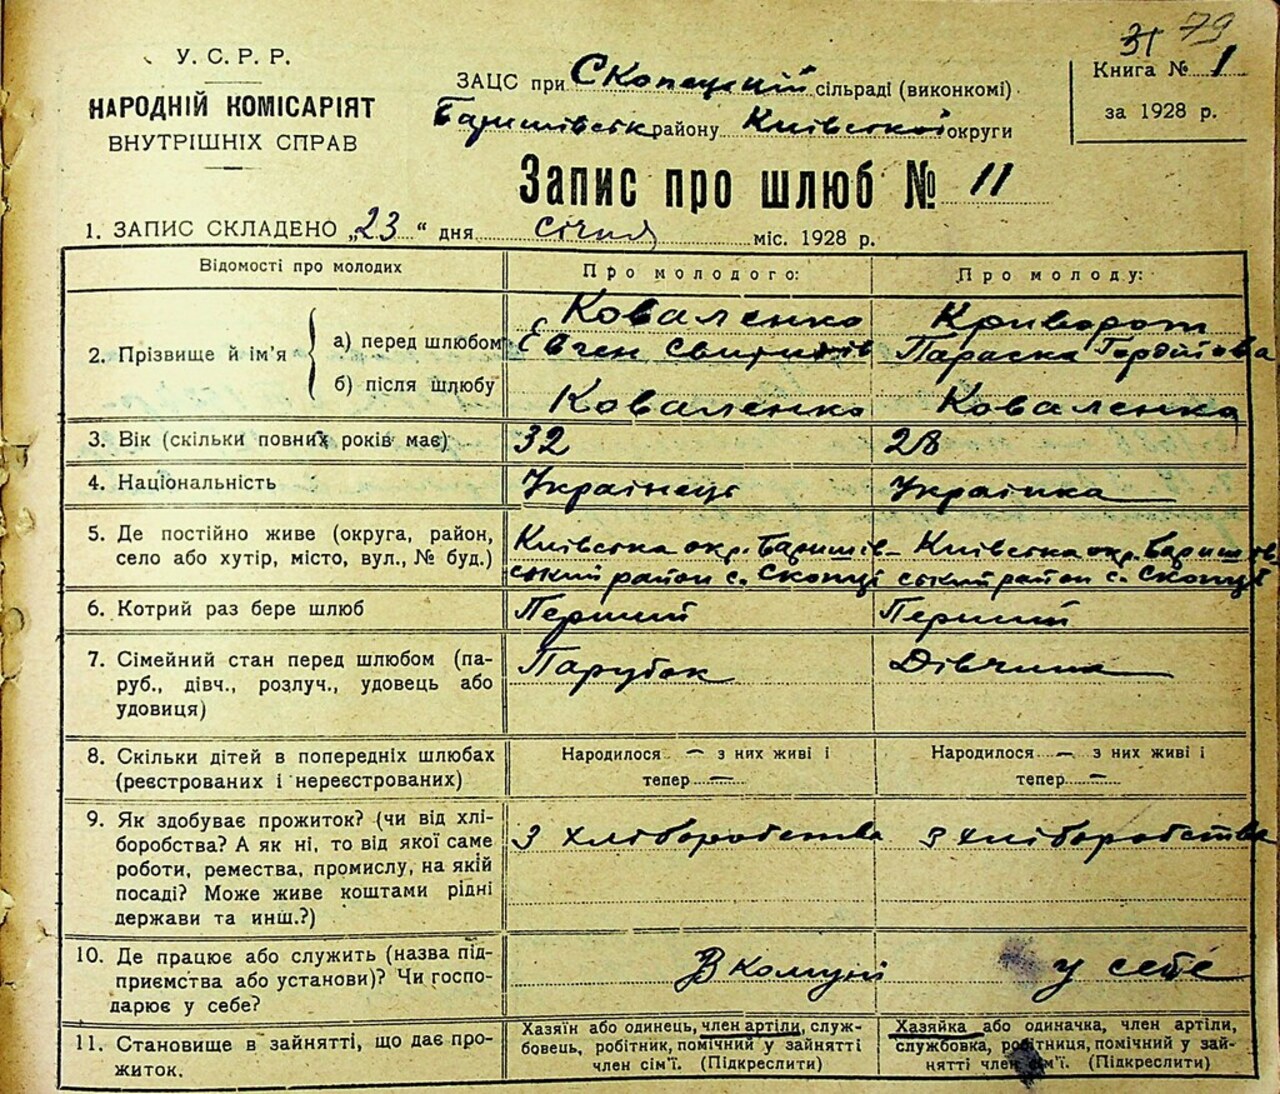 31 79
У. С. Р. Р.
НАРОДНІЙ КОМІСАРІЯТ
ВНУТРІШНІХ СПРАВ
ЗАЦС при Скопецкій сільраді (виконкомі)
Баришівськ району Київської округи
Книга № 1
за 1928 р.
Запис про шлюб № 11
1. ЗАПИС СКЛАДЕНО „23“ дня січня міс. 1928 р.
Відомості про молодих
Про молодого:
Про молоду:
2. Прізвище й ім'я
а) перед шлюбом
б) після шлюбу
Коваленко
Евген
Коваленко
Криворот
Параска Гордіїва
Коваленко
3. Вік (скільки повних років має)
32
28
4. Національність
Українець
Українка
5. Де постійно живе (округа, район,
село або хутір, місто, вул., № буд.)
Київська окр. Баришів-
ський район с. Скопці
Київська окр. Баришів
ський район с. Скопці
6. Котрий раз бере шлюб
Перший
Перший
7. Сімейний стан перед шлюбом (па-
руб., дівч., розлуч., удовець або
удовиця)
Парубок
Дівчина
8. Скільки дітей в попередніх шлюбах
(реєстрованих і нереєстрованих)
Народилося — з них живі і
тепер —
Народилося — з них живі і
тепер —
9. Як здобуває прожиток? (чи від хлі-
боробства? А як ні, то від якої саме
роботи, ремества, промислу, на якій
посаді? Може живе коштами рідні
держави та инш.?)
З хліборобства
З хліборобства
10. Де працює або служить (назва під-
приємства або установи)? Чи госпо-
дарює у себе?
В комуні
у себе
11. Становище в зайнятті, що дає про-
житок.
Хазяїн або одинець, член артілі, служ-
бовець, робітник, помічний у зайнятті
член сім'ї. (Підкреслити)
Хазяйка або одиначка, член артілі,
службовка, робітниця, помічний у зай-
нятті член сім'ї. (Підкреслити)